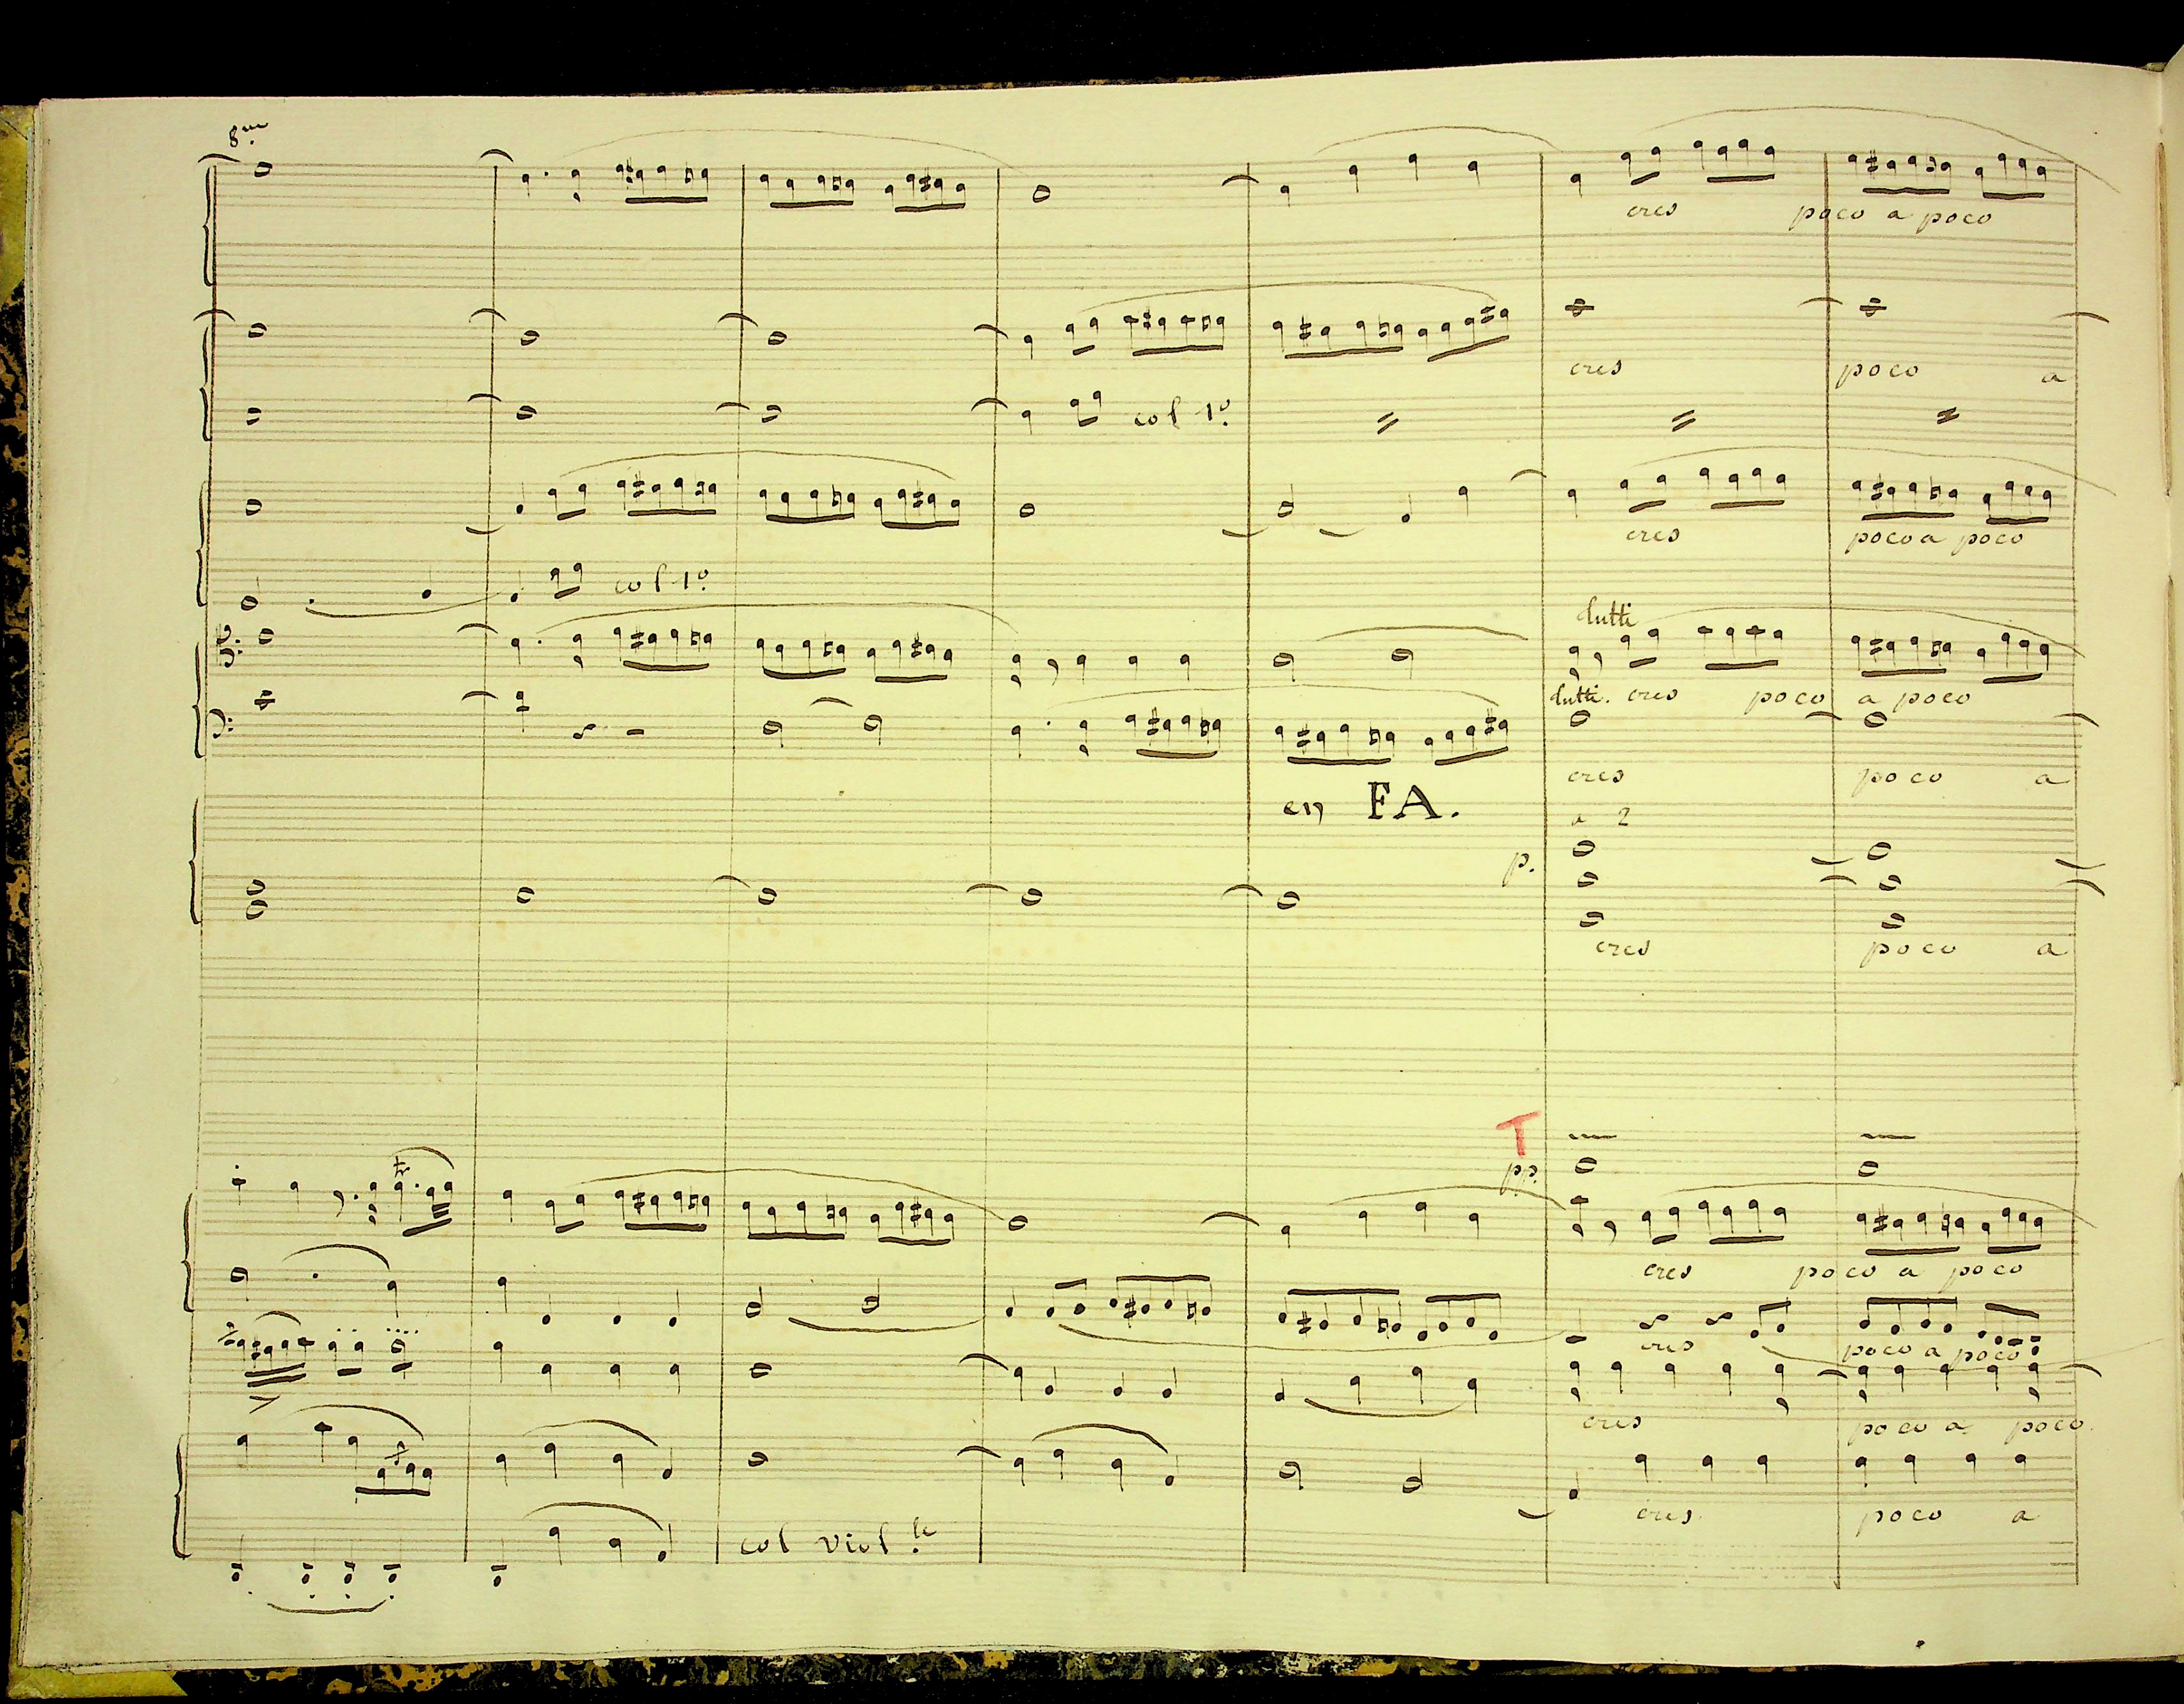 8va
cres poco a poco
cres poco a
col 1º
cres poco a poco
col 1º
tutti
tutti. cres poco a poco
cres poco a
en FA.
a 2
p.
cres poco a
T
pp.
tr
cres poco a poco
cres poco a poco
cres poco a poco.
cres. poco a
col viol.le